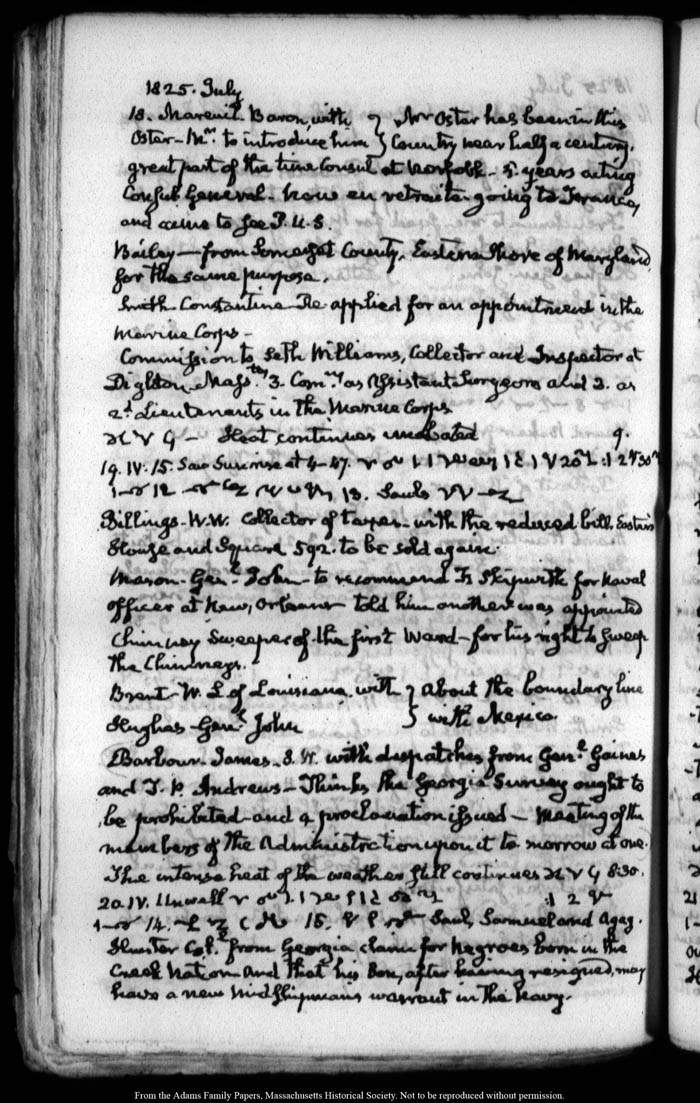 1825. July
18. Mareuil. Baron, with } Mr Ostar has been in this
Ostar - Mr. to introduce him } Country near half a century.
great part of the time Consul at Norfolk - 5. years acting
Consul General - now en retraite going to France,
and came to see P. U. S.
Bailey — from Somerset County, Eastern Shore of Maryland
for the same purpose.
Smith Constantine Re applied for an appointment in the
Marine Corps -
Commission to Seth Williams, Collector and Inspector at
Dighton, Masstts. 3. Comns. as Assistant Surgeons and 2. as
2d. Lieutenants in the Marine Corps
Heat continues unabated 9.
19. IV. 15. Saw Sunrise at 4-47.
13. Sauls
Billings - W. W. Collector of taxes - with the reduced bill, Eastin's
House and Square 592. to be sold again.
Mason - Genl. John - to recommend Skipwith for Naval
officer at New, Orleans told him another was appointed
Chimney Sweeper of the first Ward - for his right to sweep
the Chimneys.
Brent - W. L of Louisiana, with } about the boundary line
Hughes Genl. John } with Mexico
Barbour. James. S. W. with despatches from Genl. Gaines
and T. P. Andrews - Thinks the Georgia Survey ought to
be prohibited and a proclamation issued - Meeting of the
members of the Administration upon it to morrow at one.
The intense heat of the weather still continues 8:30.
20. IV. Unwell
14. 15. Saul, Samuel and Agag.
Hunter Col. from Georgia claim for Negroes born in the
Creek Nation and that his Son, after having resigned, may
have a new Midshipmans warrant in the Navy.
From the Adams Family Papers, Massachusetts Historical Society. Not to be reproduced without permission.